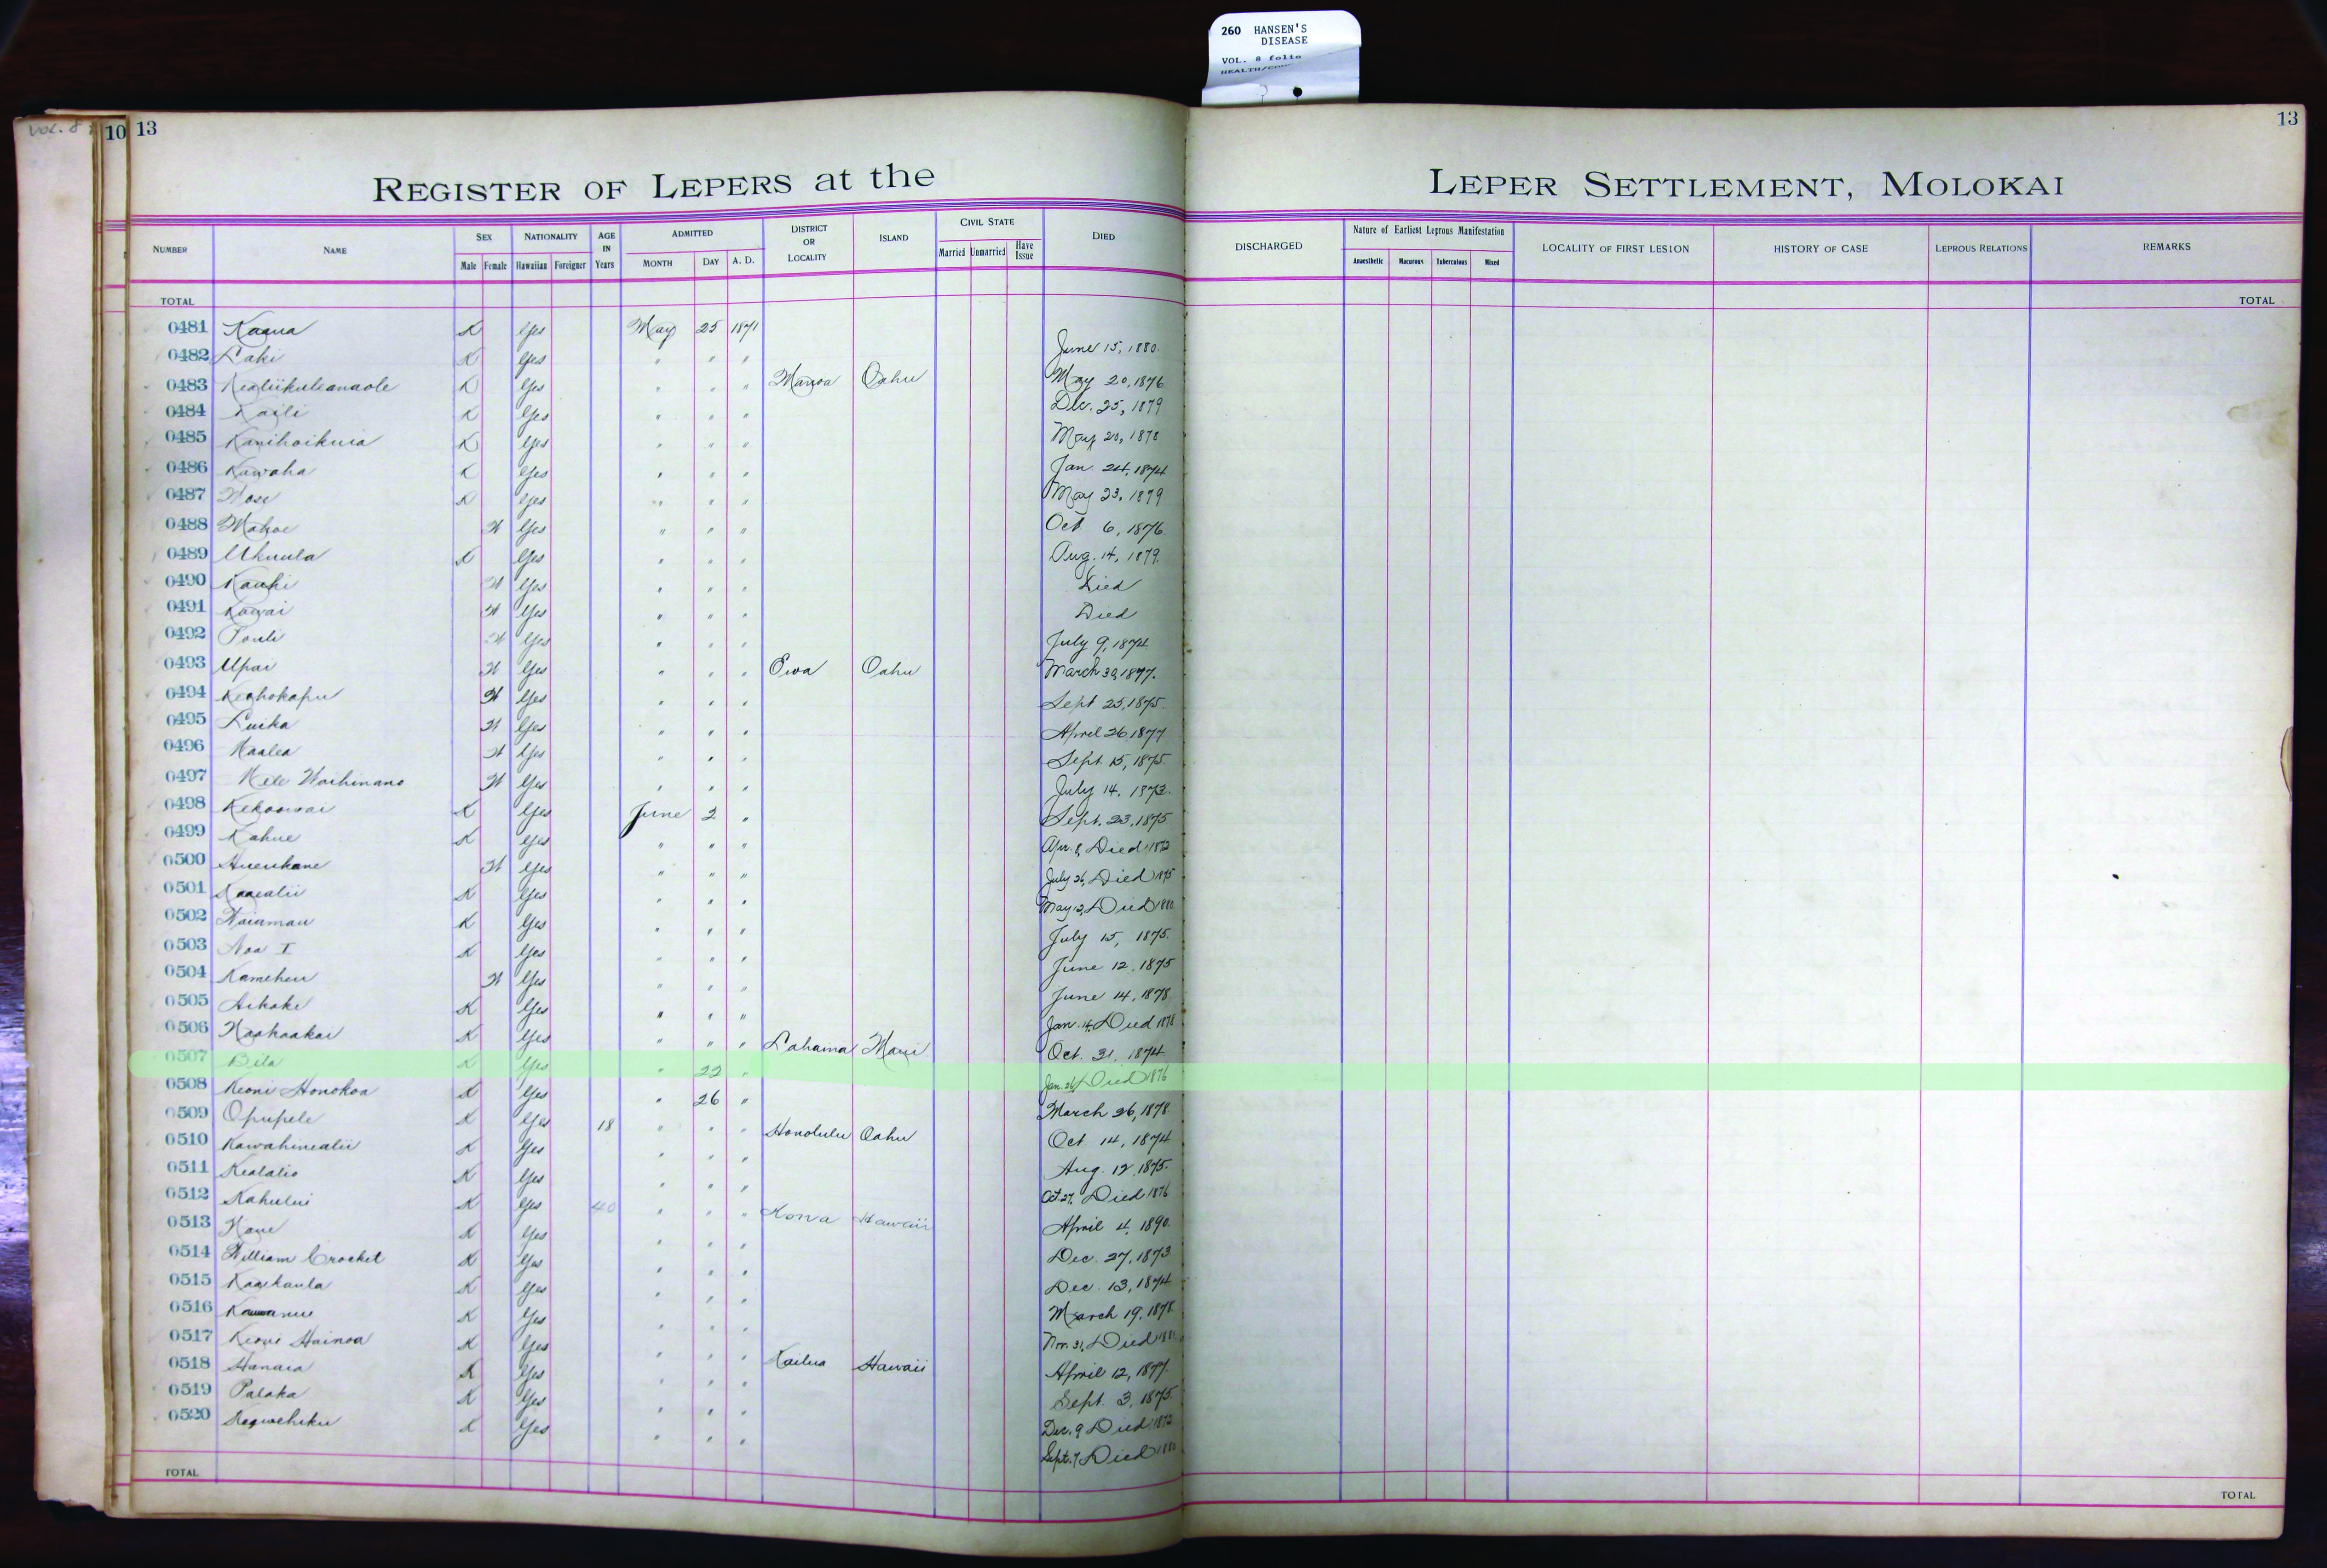 260 HANSEN'S
DISEASE
VOL. 8 folio
VOL. 8
10 13
13
REGISTER OF LEPERS at the
LEPER SETTLEMENT, MOLOKAI
NUMBER NAME SEX Male Female NATIONALITY Hawaiian Foreigner AGE IN Years ADMITTED MONTH DAY A. D. DISTRICT OR LOCALITY ISLAND CIVIL STATE Married Unmarried Have Issue DIED
DISCHARGED Nature of Earliest Leprous Manifestation Anaesthetic Macurous Tuberculous Mixed LOCALITY OF FIRST LESION HISTORY OF CASE LEPROUS RELATIONS REMARKS
TOTAL
TOTAL
0481 Kaaua K Yes May 25 1871
0482 Laki K Yes " " " June 15, 1880.
0483 Kealiikuleanaole K Yes " " " Manoa Oahu May 20, 1876
0484 Kaili K Yes " " " Dec. 25, 1879
0485 Kanihoikuia K Yes " " " May 20, 1878
0486 Kuwaha K Yes " " " Jan. 24, 1874
0487 K Yes " " " May 23, 1879
0488 Mahoe W Yes " " " Oct 6, 1876.
0489 Ukuula K Yes " " " Aug. 14, 1879.
0490 Kauhi W Yes " " " Died
0491 Kawai W Yes " " " Died
0492 Pouli W Yes " " " July 9, 1874
0493 Upai W Yes " " " Ewa Oahu March 30, 1877.
0494 Keahokapu W Yes " " " Sept 25, 1875.
0495 Luika W Yes " " " April 26 1877
0496 Kaalea W Yes " " " Sept. 15, 1875.
0497 Mele Waihinano W Yes " " " July 14, 1873.
0498 Kekoowai K Yes June 2 " Sept. 23, 1875
0499 Kahue K Yes " " " Apr. 8, Died 1872
0500 Hueukane W Yes " " " July 26, Died 1875
0501 Kaaealii K Yes " " " May 12, Died 1880
0502 Waiamau K Yes " " " July 15, 1875.
0503 Noa I K Yes " " " June 12. 1875
0504 Kameheu W Yes " " " June 14, 1878
0505 Aikake K Yes " " " Jan. 14, Died 1878
0506 Kaahaakai K Yes " " " Lahaina Maui Oct. 31, 1874
0507 Bila K Yes " 22 " Jan. 26, Died 1876
0508 Keoni Honokoa K Yes " 26 " March 26, 1878
0509 Opupele K Yes 18 " " " Honolulu Oahu Oct 14, 1874
0510 Kawahinealii K Yes " " " Aug. 12, 1875.
0511 Kealalio K Yes " " " Oct. 27, Died 1876
0512 Kahului K Yes 40 " " " Kona Hawaii April 4, 1890.
0513 K Yes " " " Dec. 27, 1873
0514 William Crocket K Yes " " " Dec. 13, 1874
0515 Kaaikaula K Yes " " " March 19, 1878
0516 K Yes " " " Nov. 31, Died 1881
0517 Keoni Hainoa K Yes " " " Kailua Hawaii April 12, 1877.
0518 Hanaia K Yes " " " Sept. 3, 1875.
0519 Palaka K Yes " " " Dec. 9 Died 1872
0520 K Yes " " " Sept. 7 Died 1880
TOTAL
TOTAL